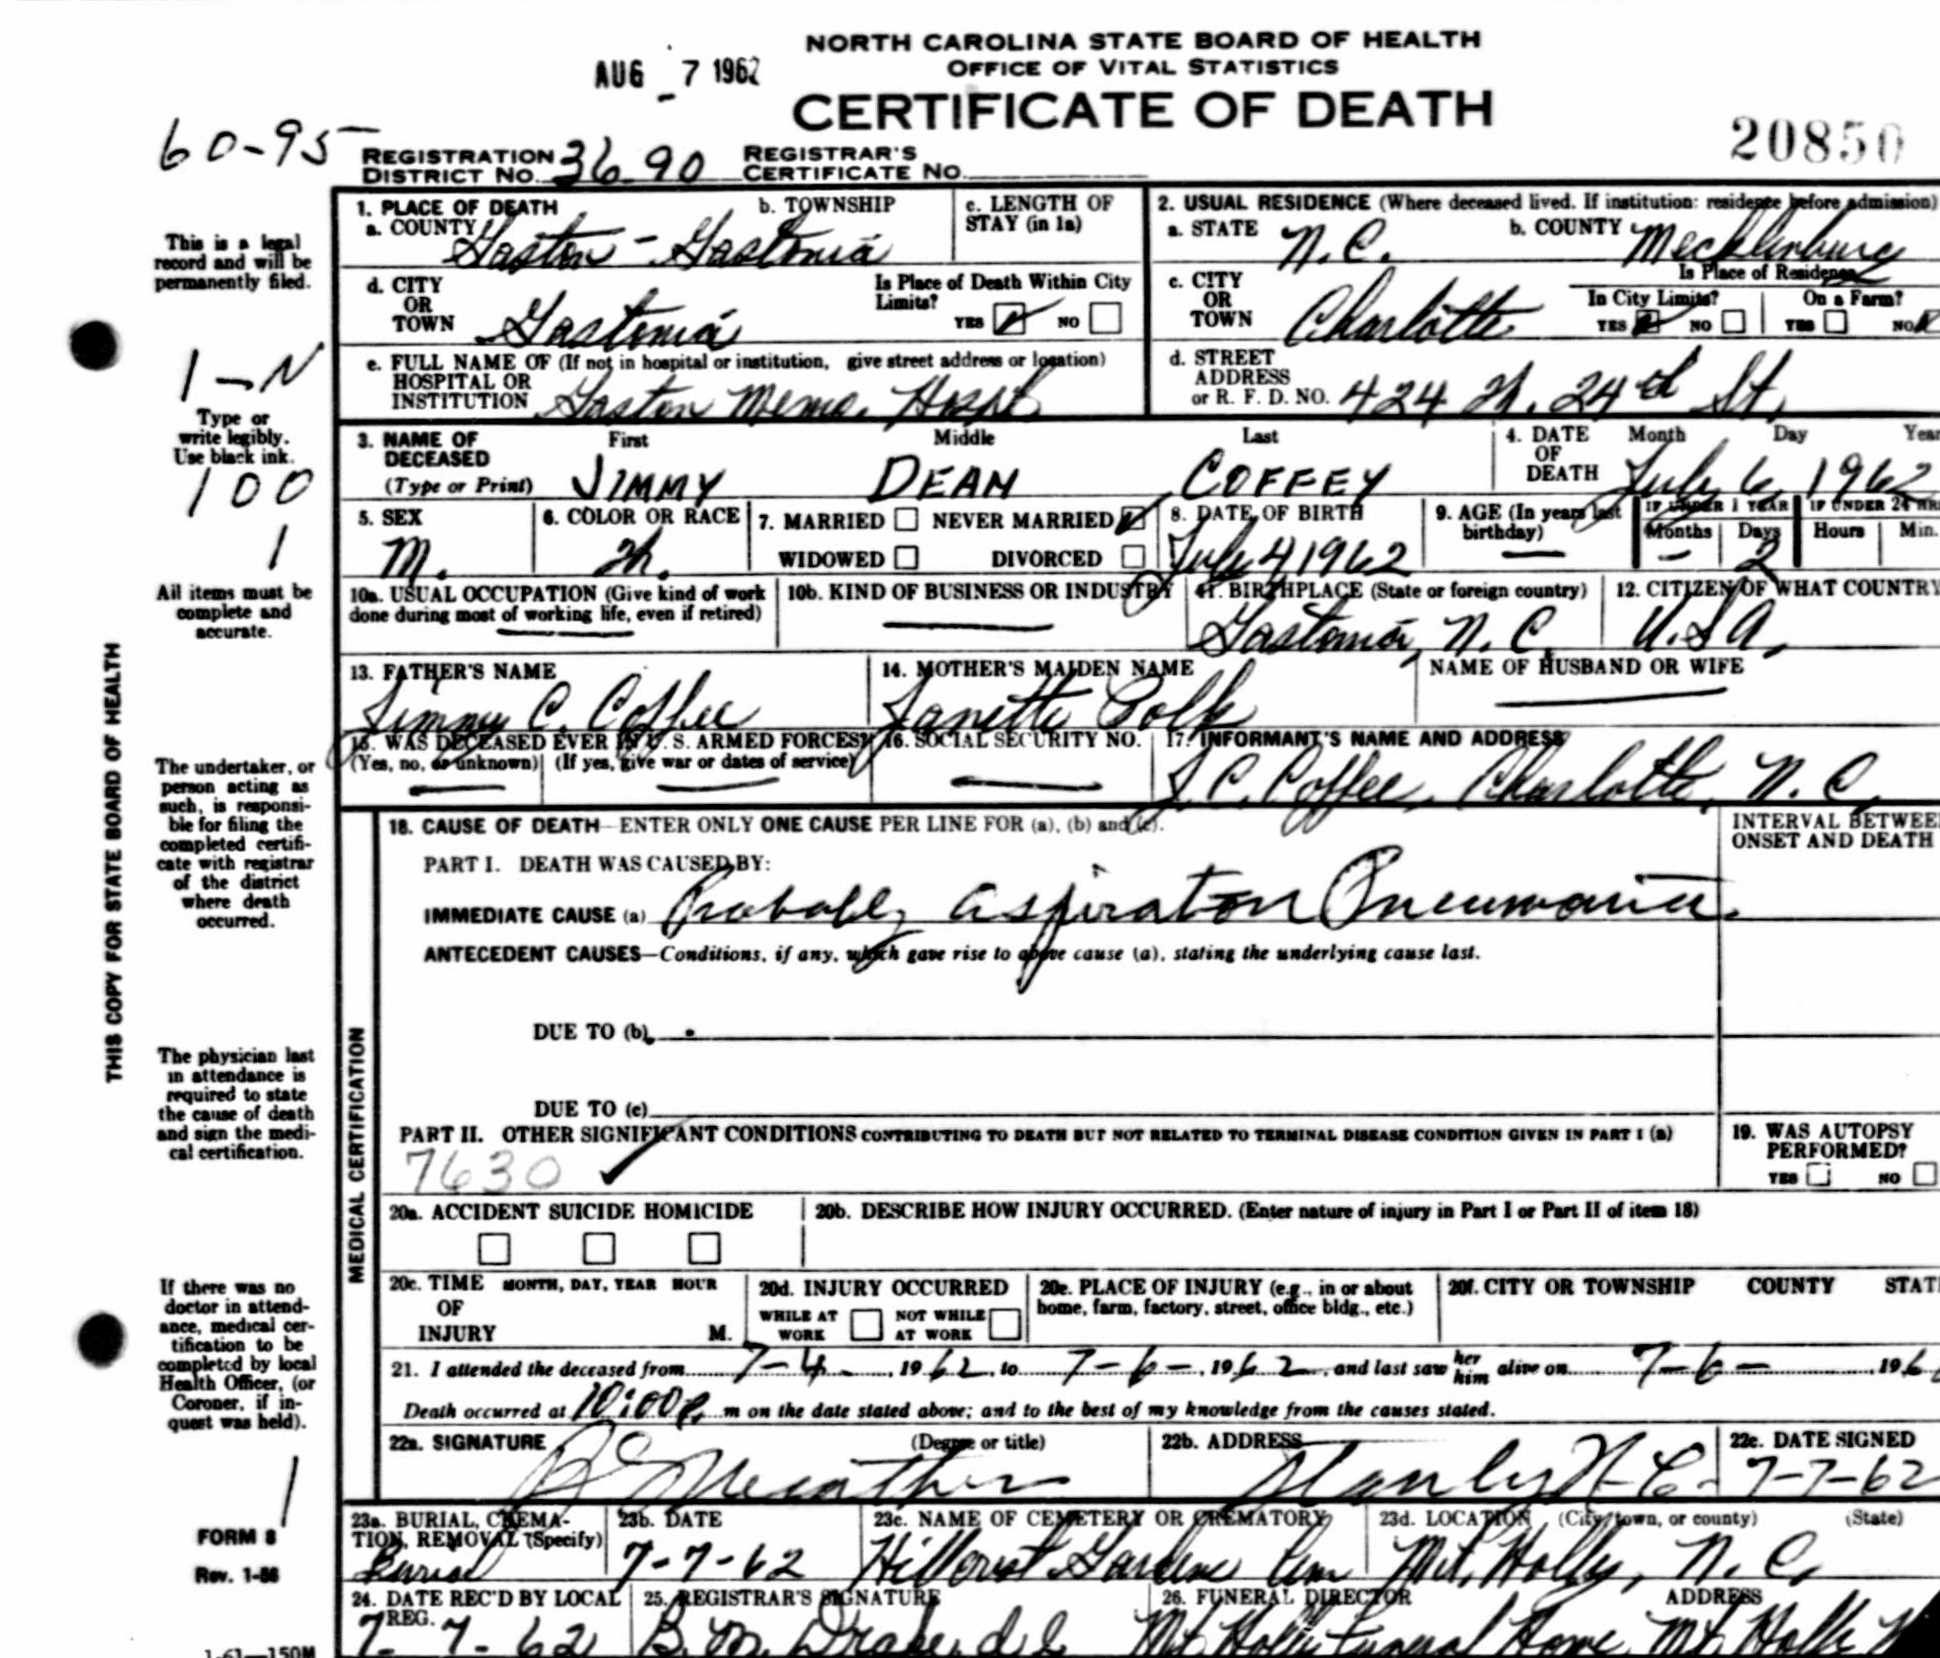 AUG 7 1962
NORTH CAROLINA STATE BOARD OF HEALTH
OFFICE OF VITAL STATISTICS
CERTIFICATE OF DEATH
20850
60-95
REGISTRATION DISTRICT NO. 36-90 REGISTRAR'S CERTIFICATE NO.
1. PLACE OF DEATH
a. COUNTY Gaston - Gastonia
b. TOWNSHIP
c. LENGTH OF STAY (in 1a)
2. USUAL RESIDENCE (Where deceased lived. If institution: residence before admission)
a. STATE N.C.
b. COUNTY Mecklenburg
d. CITY OR TOWN Gastonia
Is Place of Death Within City Limits?
YES NO
c. CITY OR TOWN Charlotte
Is Place of Residence
In City Limits? YES NO
On a Farm? YES NO
e. FULL NAME OF (If not in hospital or institution, give street address or location)
HOSPITAL OR INSTITUTION Gaston Memo. Hospt
d. STREET ADDRESS or R. F. D. NO. 424 W. 24th St.
3. NAME OF DECEASED (Type or Print)
First Middle Last
JIMMY DEAN COFFEY
4. DATE OF DEATH Month Day Year
July 6, 1962
5. SEX M.
6. COLOR OR RACE W.
7. MARRIED NEVER MARRIED
WIDOWED DIVORCED
8. DATE OF BIRTH July 4 1962
9. AGE (In years last birthday) —
IF UNDER 1 YEAR Months – Days 2
IF UNDER 24 HRS Hours Min.
10a. USUAL OCCUPATION (Give kind of work done during most of working life, even if retired)
10b. KIND OF BUSINESS OR INDUSTRY
11. BIRTHPLACE (State or foreign country)
Gastonia, N. C.
12. CITIZEN OF WHAT COUNTRY
U.S.A.
13. FATHER'S NAME
Jimmy C. Coffee
14. MOTHER'S MAIDEN NAME
Janette Polk
NAME OF HUSBAND OR WIFE
15. WAS DECEASED EVER IN U. S. ARMED FORCES?
(Yes, no, or unknown) (If yes, give war or dates of service)
16. SOCIAL SECURITY NO.
17. INFORMANT'S NAME AND ADDRESS
J. C. Coffee, Charlotte, N. C.
18. CAUSE OF DEATH—ENTER ONLY ONE CAUSE PER LINE FOR (a), (b) and (c).
INTERVAL BETWEEN ONSET AND DEATH
PART I. DEATH WAS CAUSED BY:
IMMEDIATE CAUSE (a) Probably aspiration Pneumonia.
ANTECEDENT CAUSES—Conditions, if any, which gave rise to above cause (a), stating the underlying cause last.
DUE TO (b)
DUE TO (c)
PART II. OTHER SIGNIFICANT CONDITIONS CONTRIBUTING TO DEATH BUT NOT RELATED TO TERMINAL DISEASE CONDITION GIVEN IN PART I (a)
7630
19. WAS AUTOPSY PERFORMED?
YES NO
20a. ACCIDENT SUICIDE HOMICIDE
20b. DESCRIBE HOW INJURY OCCURRED. (Enter nature of injury in Part I or Part II of item 18)
20c. TIME OF INJURY MONTH, DAY, YEAR HOUR M.
20d. INJURY OCCURRED
WHILE AT WORK NOT WHILE AT WORK
20e. PLACE OF INJURY (e.g., in or about home, farm, factory, street, office bldg., etc.)
20f. CITY OR TOWNSHIP COUNTY STATE
21. I attended the deceased from 7-4-, 1962, to 7-6-, 1962, and last saw her him alive on 7-6- 196
Death occurred at 10:00 P. m on the date stated above; and to the best of my knowledge from the causes stated.
22a. SIGNATURE (Degree or title)
22b. ADDRESS Stanley N-C-
22c. DATE SIGNED 7-7-62
23a. BURIAL, CREMATION, REMOVAL (Specify)
Burial
23b. DATE
7-7-62
23c. NAME OF CEMETERY OR CREMATORY
Hillcrest Gardens Cem
23d. LOCATION (City, town, or county) (State)
Mt. Holly, N. C.
24. DATE REC'D BY LOCAL REG.
7-7-62
25. REGISTRAR'S SIGNATURE
B. M. Drake
26. FUNERAL DIRECTOR ADDRESS
Mt Holly Funeral Home, Mt. Holly N
MEDICAL CERTIFICATION
THIS COPY FOR STATE BOARD OF HEALTH
This is a legal
record and will be
permanently filed.
1-N
Type or
write legibly.
Use black ink.
100
1
All items must be
complete and
accurate.
The undertaker, or
person acting as
such, is responsi-
ble for filing the
completed certifi-
cate with registrar
of the district
where death
occurred.
The physician last
in attendance is
required to state
the cause of death
and sign the medi-
cal certification.
If there was no
doctor in attend-
ance, medical cer-
tification to be
completed by local
Health Officer, (or
Coroner, if in-
quest was held).
1
FORM 8
Rev. 1-56
1-61—150M